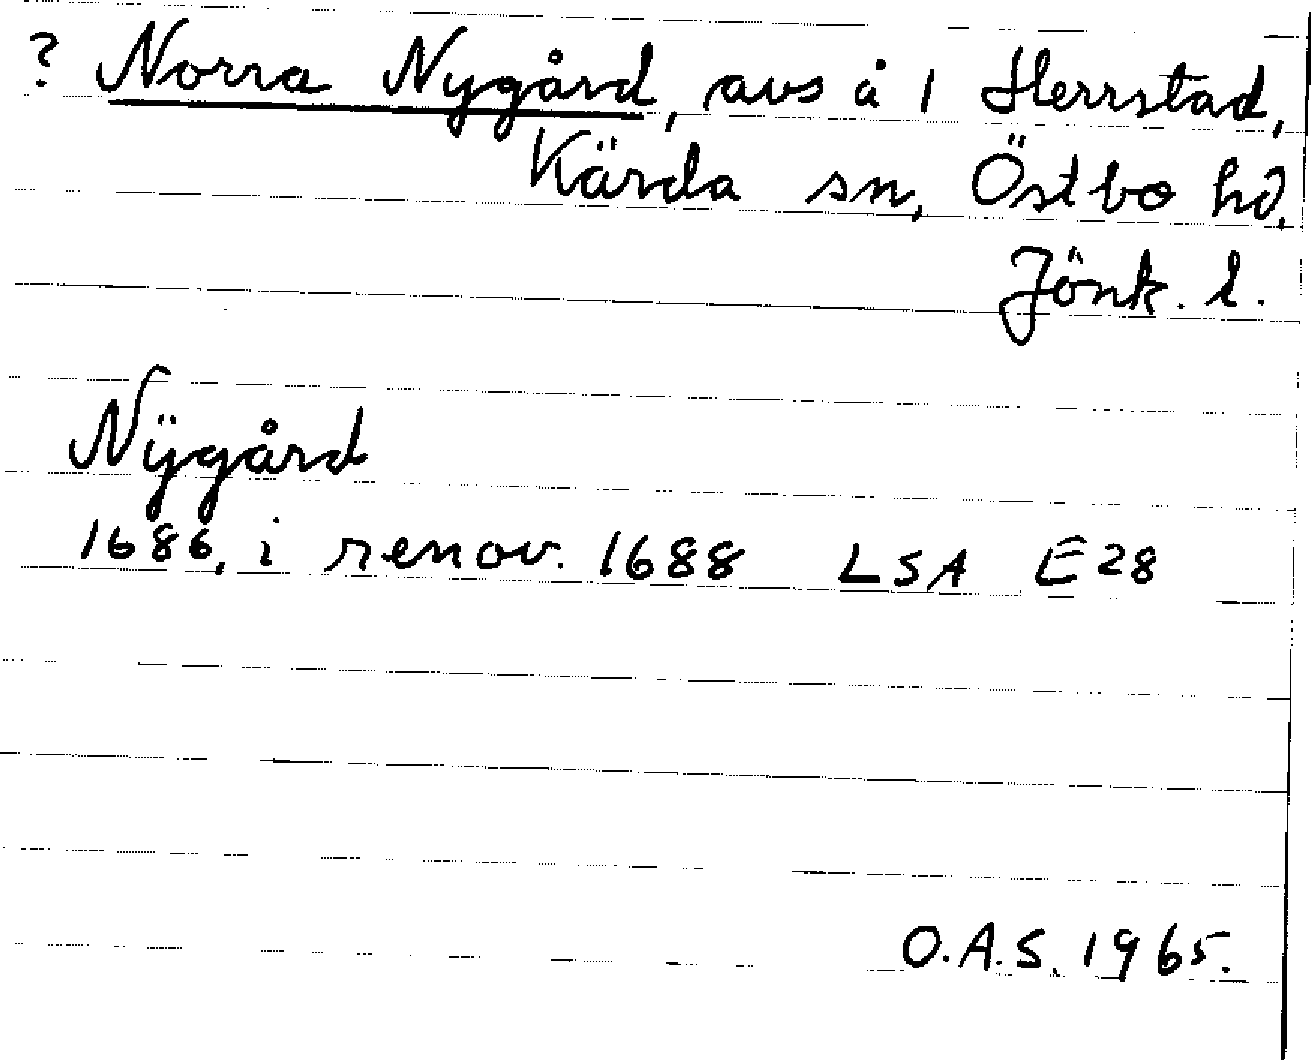 ? Norra Nygård, avs å 1 Herrstad,
Kärda sn, Östbo hd.
Jönk. l.
Nÿgård
1686, i renov. 1688 LSA E28
O.A.S. 1965.